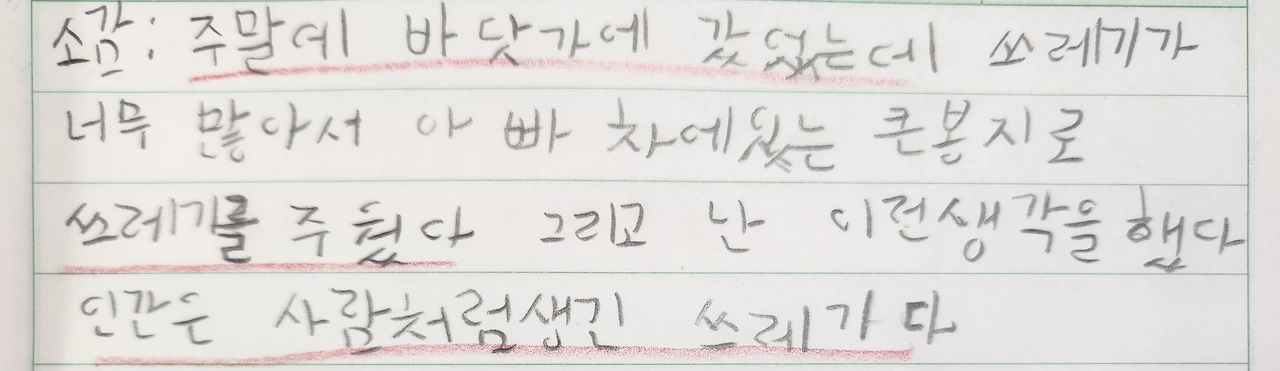 소감: 주말에 바닷가에 갔었는데 쓰레기가
너무 많아서 아빠 차에있는 큰봉지로
쓰레기를 주웠다 그리고 난 이런생각을 했다
인간은 사람처럼생긴 쓰레기다